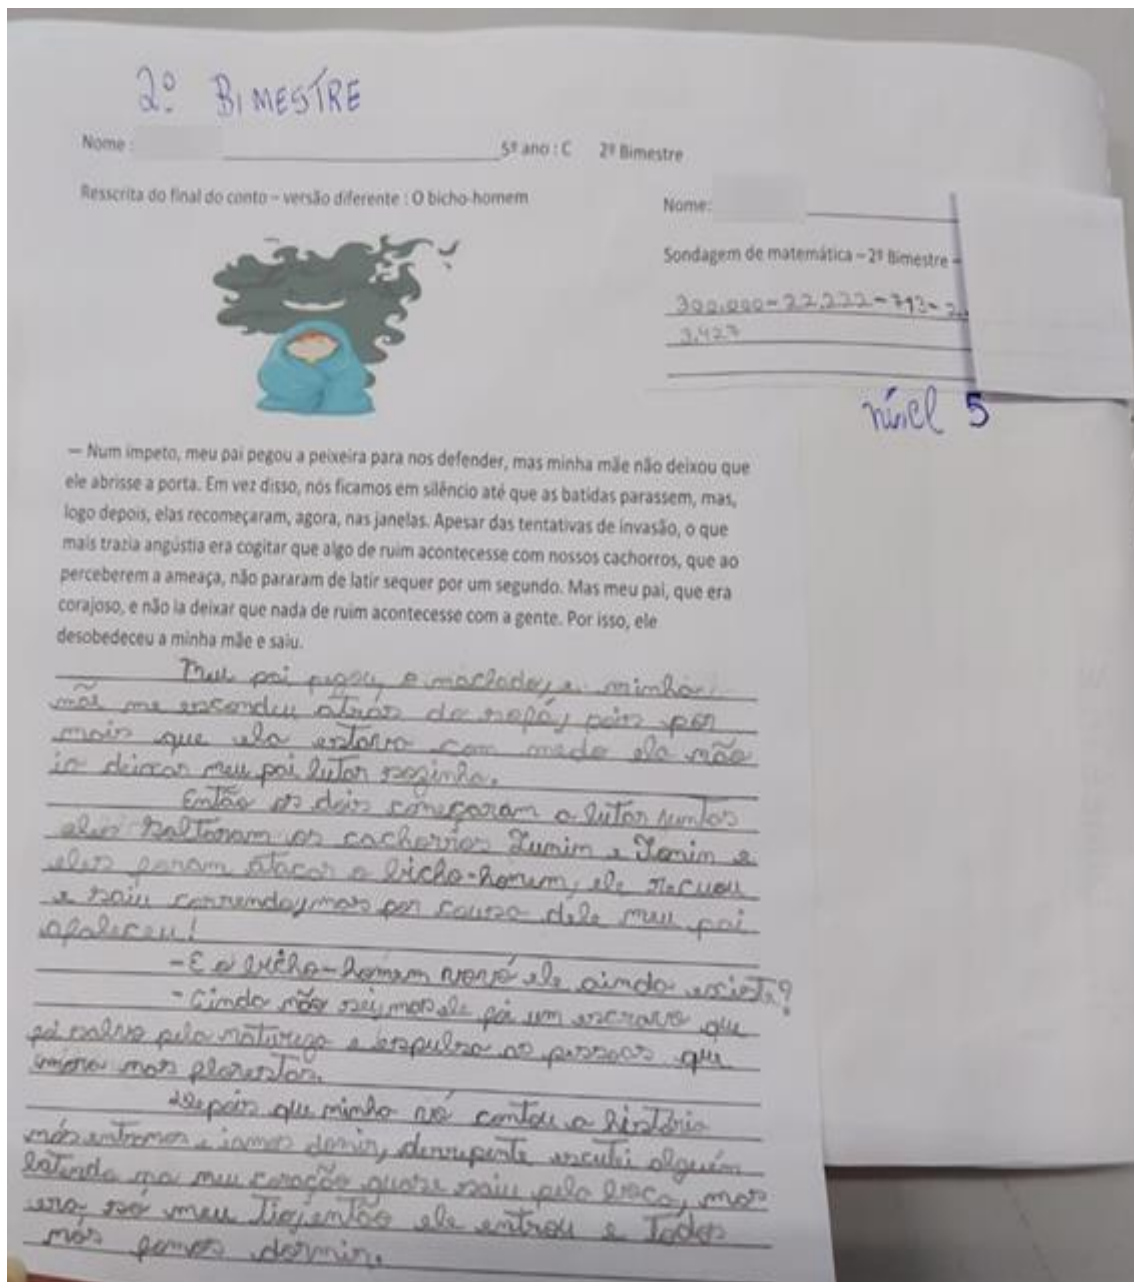 2º BIMESTRE
Nome : 5º ano : C 2º Bimestre
Resscrita do final do conto – versão diferente : O bicho-homem
Nome:
Sondagem de matemática – 2º Bimestre –
300.000 - 22.222 - 713 -
3.427
nível 5
— Num ímpeto, meu pai pegou a peixeira para nos defender, mas minha mãe não deixou que
ele abrisse a porta. Em vez disso, nós ficamos em silêncio até que as batidas parassem, mas,
logo depois, elas recomeçaram, agora, nas janelas. Apesar das tentativas de invasão, o que
mais trazia angústia era cogitar que algo de ruim acontecesse com nossos cachorros, que ao
perceberem a ameaça, não pararam de latir sequer por um segundo. Mas meu pai, que era
corajoso, e não ia deixar que nada de ruim acontecesse com a gente. Por isso, ele
desobedeceu a minha mãe e saiu.
Meu pai pegou o machado, e minha
mãe me escondeu atrás do sofá, pois por
mais que ela estava com medo ela não
ia deixar meu pai lutar sozinho.
Então os dois começaram a lutar juntos
eles soltaram os cachorros Zunim e e
eles foram atacar o bicho-homem, ele recuou
e saiu correndo, mas por causa dele meu pai
faleceu!
- E o bicho-homem vovó ele ainda existe?
- Ainda não sei, mas ele foi um escravo que
foi salvo pela natureza e expulsa as pessoas que
mora nas florestas.
Depois que minha vó contou a história
nós entramos e iamos domir, derrepente escutei alguém
batendo na meu coração quase saiu pela boca, mas
era só meu Tio, então ele entrou e Todos
nós fomos dormir.